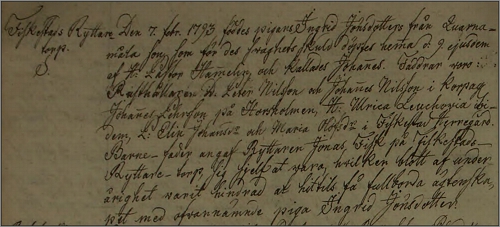 Fiskestads Ryttare Den 7. febr. 1793. föddes pigans Ingrid Jönsdotters från Quarna-
torp. måla son, som för des svaghets skuld döptes hemma d. 9 ejusdem
af H. Pastor Hamelin, och kallades Johanes. Faddrar voro:
H. Peter Nilsson och Johanes Nilsson i Korpag
Johanes på Horsholmen, H. Ulrica Leuchovia
dem, P. Elin Johansd. och Maria i Fiskestad Herregård.
Barne-fader angaf Ryttaren Jonas Fisk på Fiskestads
Ryttare-torp, sig sjelf at vara, hvilken blott af under-
årighet varit hindrad at hittils få fullborda ägtenskap
pet med ofvannämnde piga Ingrid Jönsdotter.